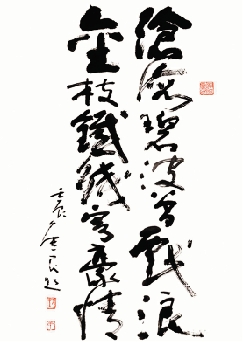 滄海碧波曾戲浪
金枝鐵線寄豪情
壬辰